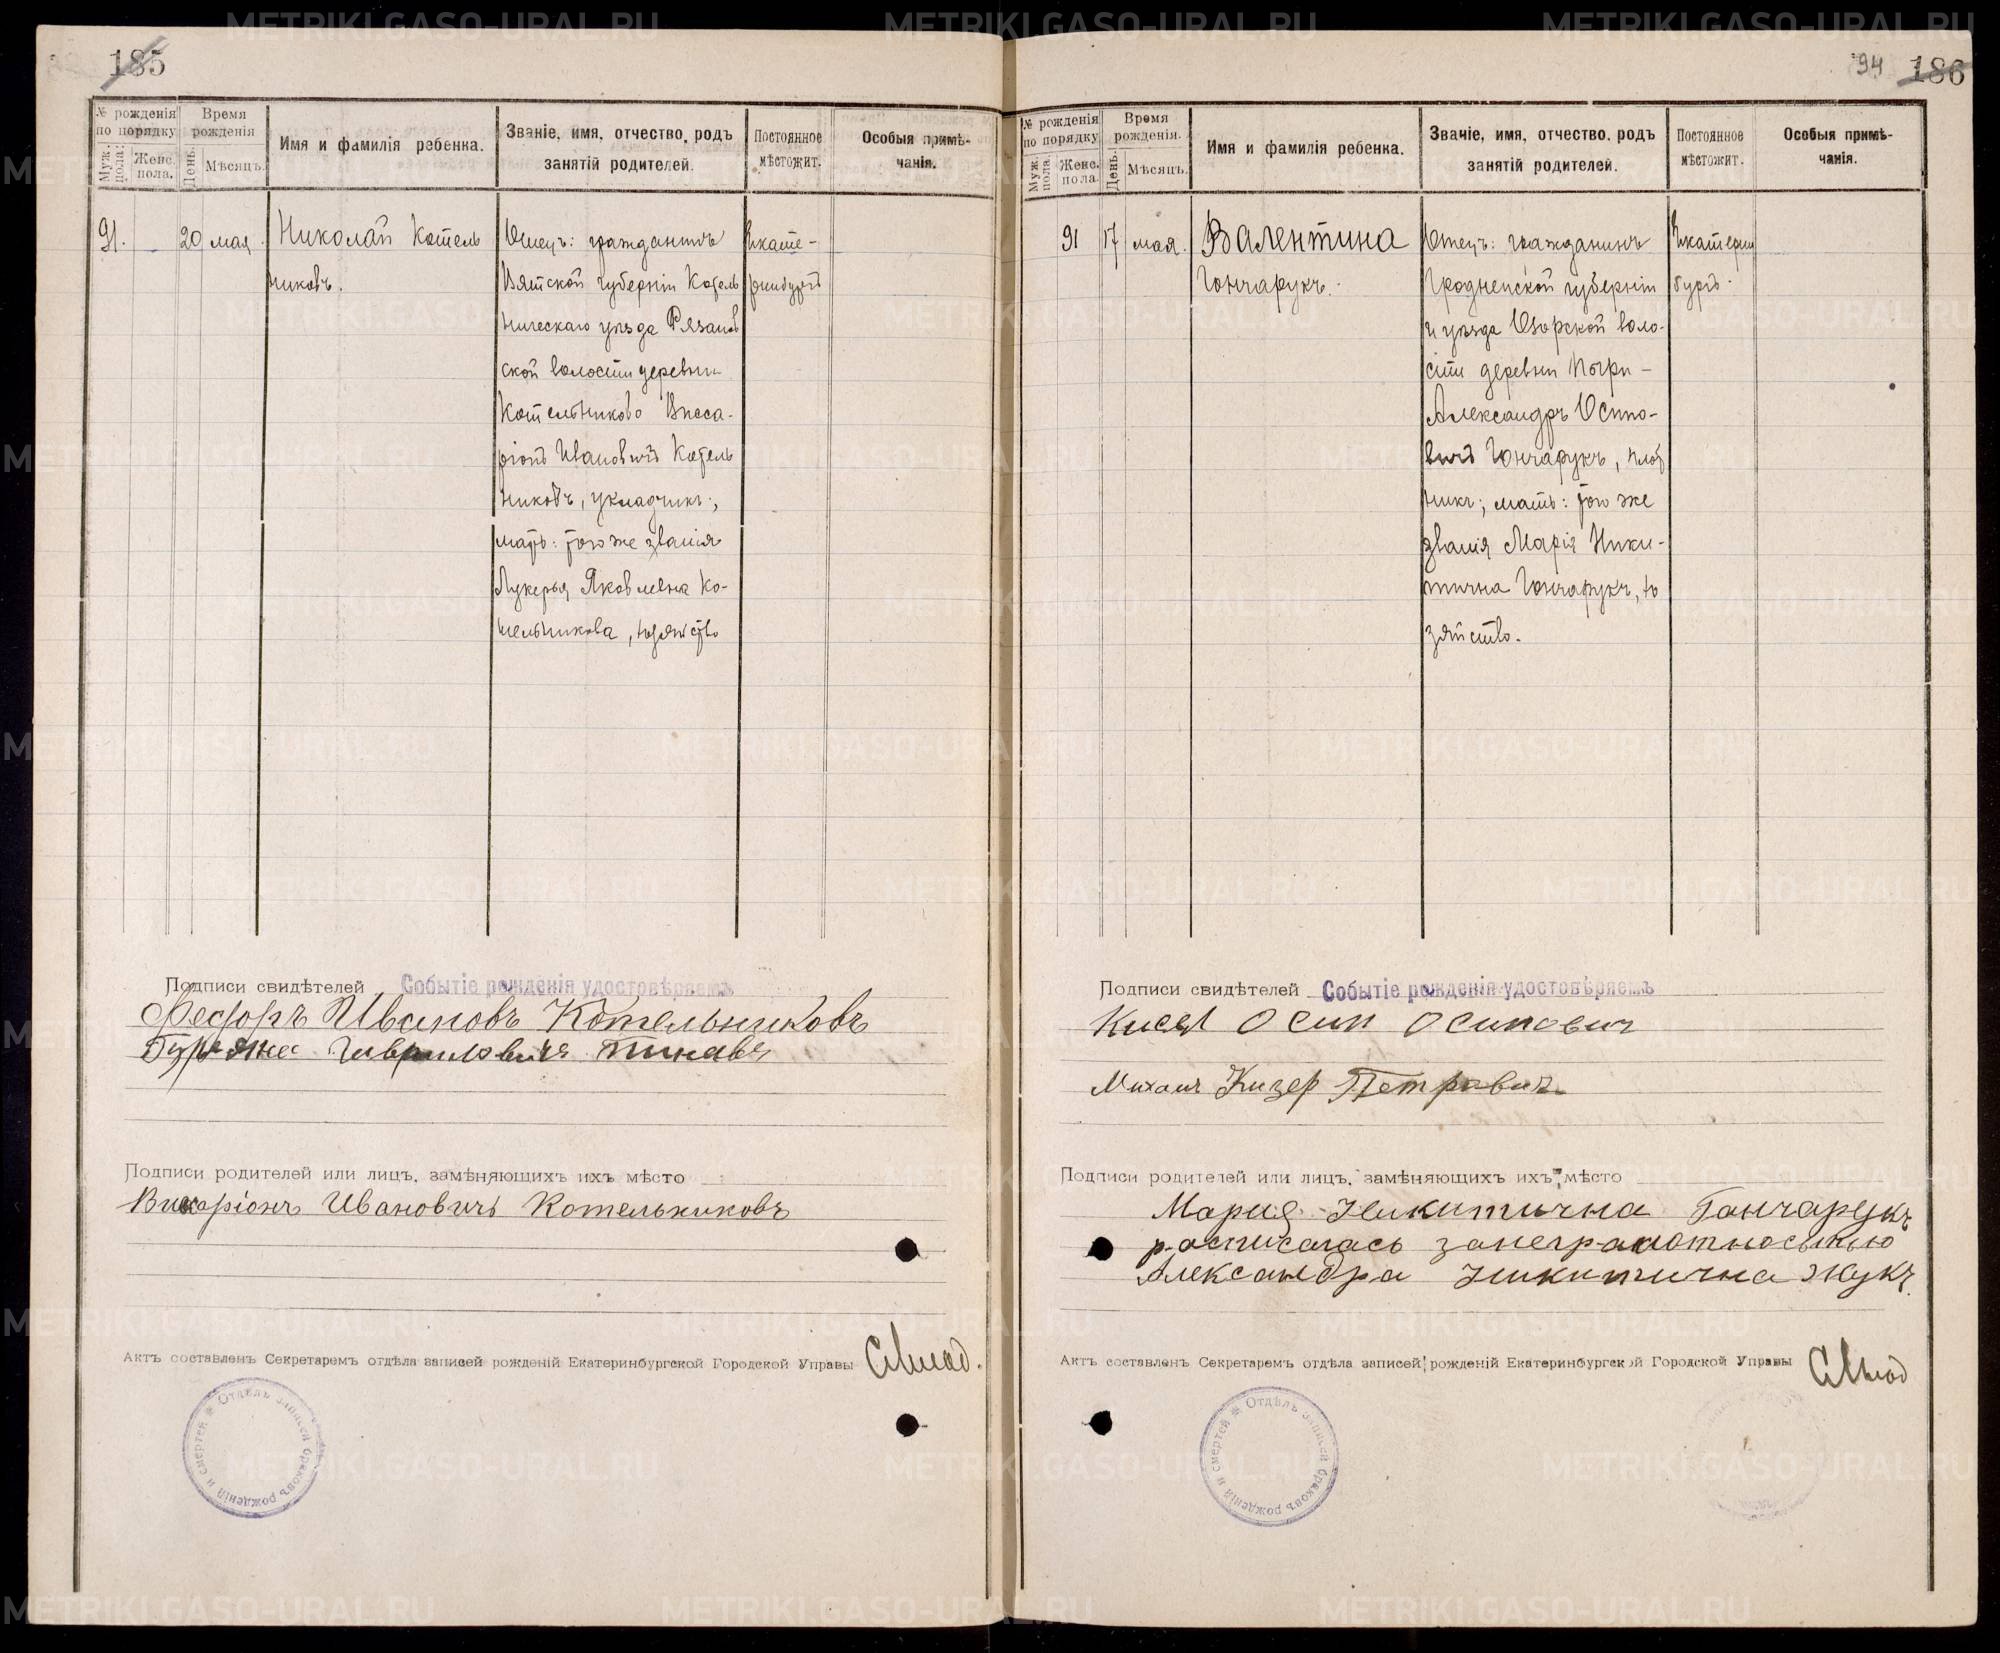 185
№ рожденія по порядку
Время рожденія
Имя и фамилія ребенка.
Званіе, имя, отчество, родъ занятій родителей.
Постоянное мѣстожит.
Особыя примѣчанія.
Муж. пола.
Женс. пола.
День.
Мѣсяцъ.
91.
20 мая.
Николай Котель
никовъ.
Отецъ: гражданинъ
Вятской губерніи Котель
ническаго уѣзда Рязанов
ской волости деревни
Котельниково Висса-
ріонъ Ивановичъ Котель
никовъ, укладчикъ;
мать: того же званія
Лукерья Яковлевна Ко-
тельникова, хозяйство
Екате-
ринбургъ
Подписи свидѣтелей
Событіе рожденія удостовѣряемъ
Федоръ Ивановъ Котельниковъ
Подписи родителей или лицъ, замѣняющихъ ихъ мѣсто
Висаріонъ Ивановичъ Котельниковъ
Актъ составленъ Секретаремъ отдѣла записей рожденій Екатеринбургской Городской Управы
Отдѣлъ записей браковъ рожденій и смертей
94
186
№ рожденія по порядку
Время рожденія.
Имя и фамилія ребенка.
Званіе, имя, отчество, родъ занятій родителей.
Постоянное мѣстожит.
Особыя примѣчанія.
Муж. пола.
Женс. пола.
День.
Мѣсяцъ.
91 17 мая.
Валентина
Гончарукъ.
Отецъ: гражданинъ
Гродненской губерніи
и уѣзда Озорской воло-
сти деревни Пыри-
Александръ Осипо-
вичъ Гончарукъ, плот
никъ; мать: того же
званія Марія Ники-
тична Гончарукъ, хо
зяйство.
Екатерин
бургъ.
Подписи свидѣтелей
Событіе рожденія удостовѣряемъ
Кисел Осип Осипович
Михаил Кизер Петравич
Подписи родителей или лицъ, замѣняющихъ ихъ мѣсто
Мария Никитична Ганчарукъ
росписалась занеграмотностью
Александра Никитична Жукъ.
Актъ составленъ Секретаремъ отдѣла записей рожденій Екатеринбургской Городской Управы
Отдѣлъ записей браковъ рожденій и смертей
METRIKI.GASO-URAL.RU